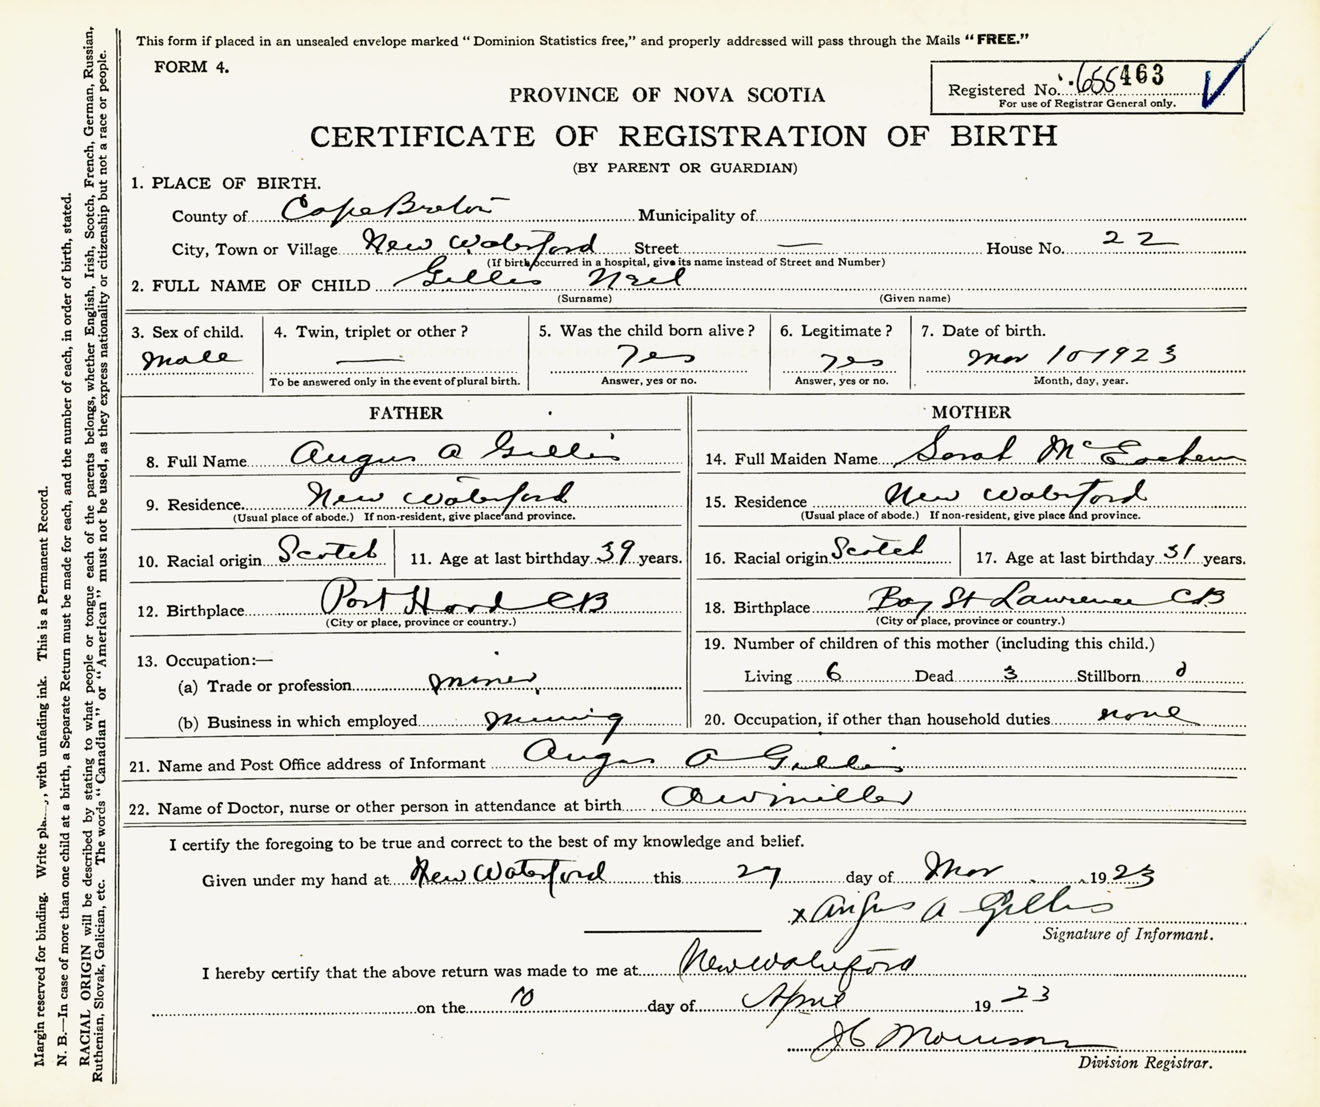 This form if placed in an unsealed envelope marked "Dominion Statistics free," and properly addressed will pass through the Mails "FREE."
FORM 4.
Registered No. 655463
For use of Registrar General only.
PROVINCE OF NOVA SCOTIA
CERTIFICATE OF REGISTRATION OF BIRTH
(BY PARENT OR GUARDIAN)
1. PLACE OF BIRTH.
County of Cape Breton Municipality of
City, Town or Village New Waterford Street — House No. 22
(If birth occurred in a hospital, give its name instead of Street and Number)
2. FULL NAME OF CHILD Gillis Neil
(Surname) (Given name)
3. Sex of child. 4. Twin, triplet or other? 5. Was the child born alive? 6. Legitimate? 7. Date of birth.
Male — Yes yes Mar 10 1923
To be answered only in the event of plural birth. Answer, yes or no. Answer, yes or no. Month, day, year.
FATHER
8. Full Name Angus A Gillis
9. Residence. New Waterford
(Usual place of abode.) If non-resident, give place and province.
10. Racial origin Scotch 11. Age at last birthday 39 years.
12. Birthplace Port Hood CB
(City or place, province or country.)
13. Occupation:—
(a) Trade or profession miner
(b) Business in which employed mining
MOTHER
14. Full Maiden Name Sarah McEachern
15. Residence New Waterford
(Usual place of abode.) If non-resident, give place and province.
16. Racial origin Scotch 17. Age at last birthday 31 years.
18. Birthplace Bay St Lawrence CB
(City or place, province or country.)
19. Number of children of this mother (including this child.)
Living 6 Dead 3 Stillborn 0
20. Occupation, if other than household duties none
21. Name and Post Office address of Informant Angus A Gillis
22. Name of Doctor, nurse or other person in attendance at birth miller
I certify the foregoing to be true and correct to the best of my knowledge and belief.
Given under my hand at New Waterford this 27 day of Mar 1923
x Angus A Gillis
Signature of Informant.
I hereby certify that the above return was made to me at New Waterford
on the 10 day of April 1923
Morrison
Division Registrar.
Margin reserved for binding. Write with unfading ink. This is a Permanent Record.
N. B.—In case of more than one child at a birth, a Separate Return must be made for each, and the number of each, in order of birth, stated.
RACIAL ORIGIN will be described by stating to what people or tongue each of the parents belongs, whether English, Irish, Scotch, French, German, Russian,
Ruthenian, Slovak, Galician, etc. The words "Canadian" or "American" must not be used, as they express nationality or citizenship but not a race or people.